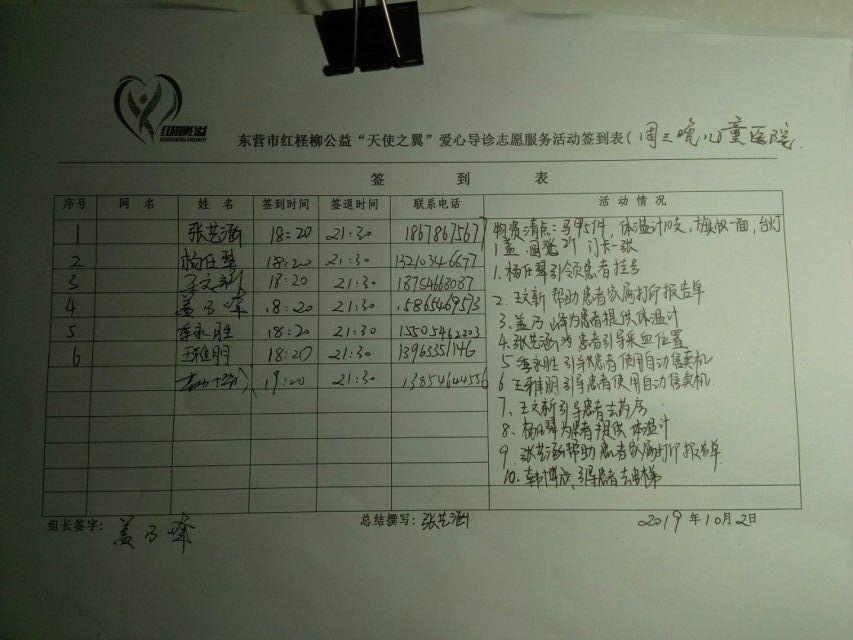 红柽柳公益
东营市红柽柳公益“天使之翼”爱心导诊志愿服务活动签到表(周三晚儿童医院
签 到 表
序号 网名 姓名 签到时间 签退时间 联系电话 活动情况
1 张艺涵 18:20 21:30 1867867567
2 杨任翠 18:20 21:30 13210346677
3 王文新 18:20 21:30
4 盖乃峰 18:20 21:30 15865469573
5 李永胜 18:20 21:30 15505462203
6 王雅朋 18:20 21:30 13963351146
19:20 21:30 13854644556
物资清点:马甲5件,体温计10支,旗帜一面,台灯
1盏 2个 门卡一张
1.杨任翠引领患者挂号
2.王文新 帮助患者家属打印报告单
3.盖乃峰为患者提供体温计
4.张艺涵为患者引导采血位置
5.李永胜引导患者使用自动售卖机
6.王雅朋引导患者使用自动售卖机
7.王文新引导患者去药房
8.杨任翠为患者提供体温计
9.张艺涵帮助患者家属打印报告单
10.韩博 引导患者去电梯
组长签字: 盖乃峰 总结撰写: 张艺涵 2019年10月2日